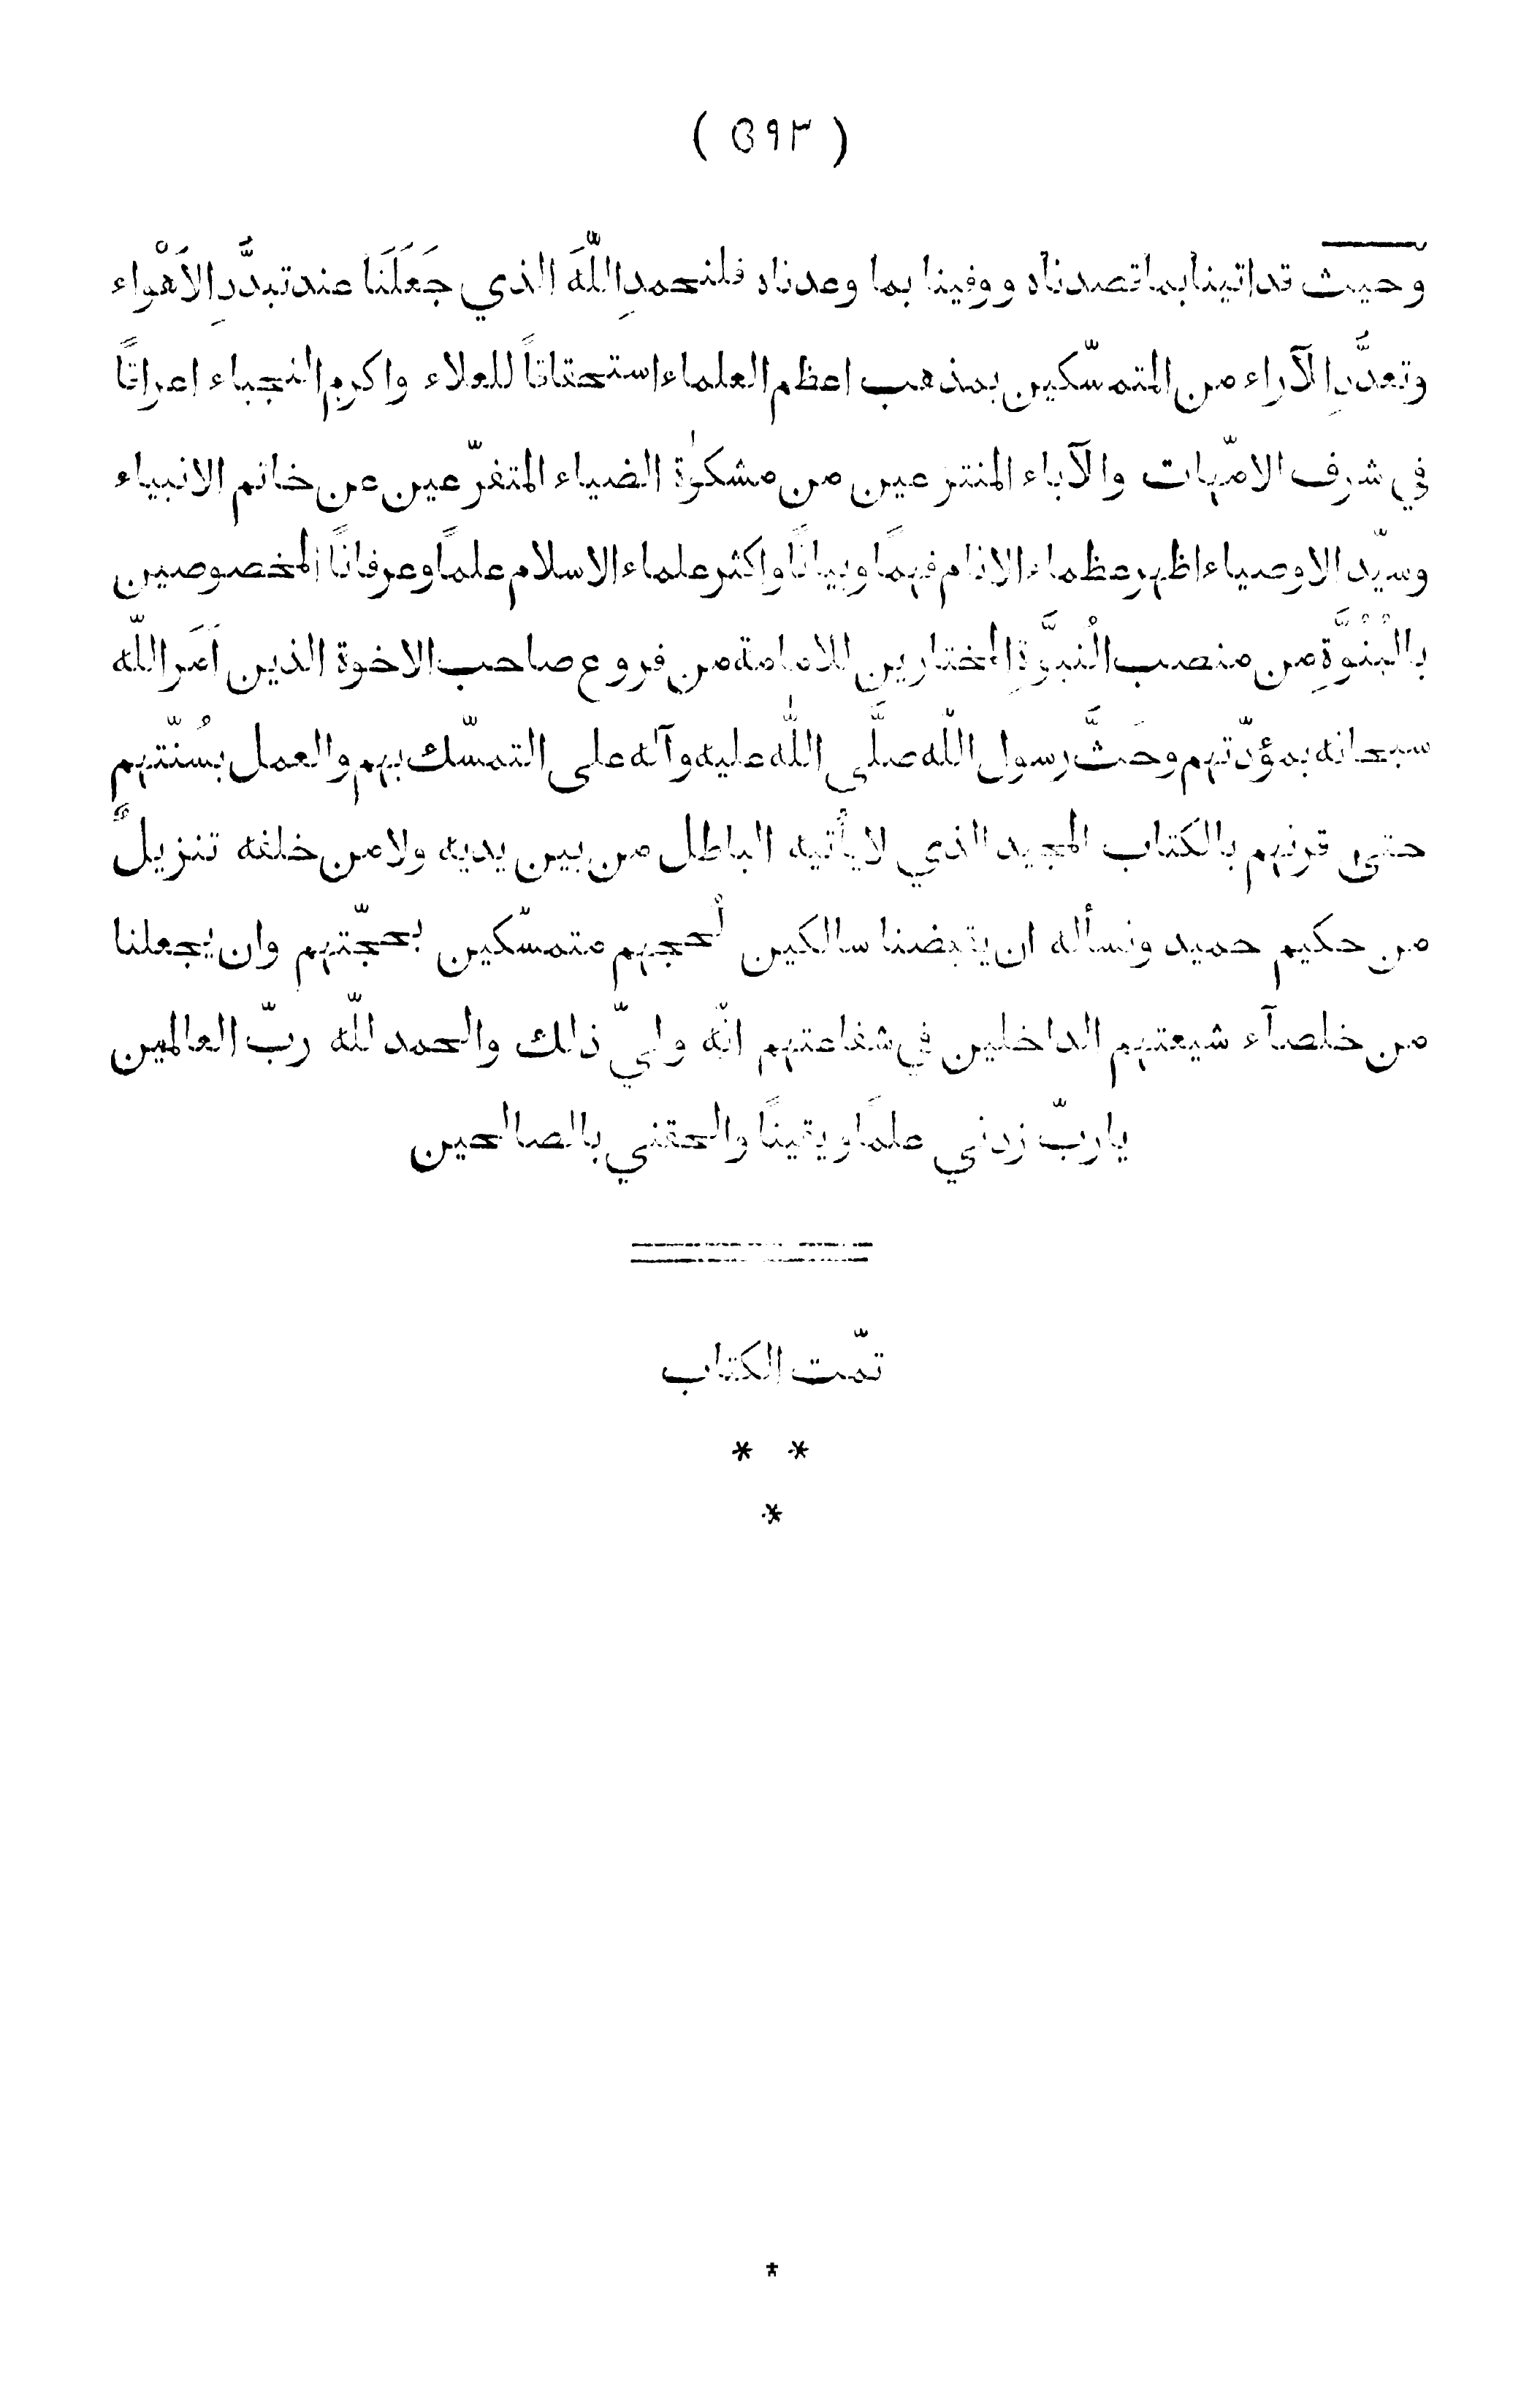 ( ٥٩٣ )
وحيث قد اتينا بما قصدناه ووفينا بما وعدناه فلنحمدِ اللّهَ الذي جَعَلَنا عند تبدُّدِ الاَهْواء
وتعدُّدِ الآراء من المتمسّكين بمذهب اعظم العلماء استحقاقاً للعلاء واكرم النجباء اعراقاً
في شرف الامّهات والآباء المنتزعين من مشكوٰة الضياء المتفرّعين عن خاتم الانبياء
وسيّد الاوصياء اظهر عظماء الانام فهمًا وبيانًا واكثر علماء الاسلام علمًا وعرفانًا المخصوصين
بالْبُنُوَّةِ من منصب النبوَّةِ المختارين للامامة من فروع صاحب الاخوة الذين اَمَر اللّه
سبحانه بمؤدّتهم وحَثَّ رسول اللّه صلَّى اللّٰه عليه وآله على التمسّك بهم والعمل بسُنّتهم
حتى قرنهم بالكتاب المجيد الذي لا يأتيه الباطل من بين يديه ولا من خلفه تنزيلٌ
من حكيم حميد ونسأله ان يقبضنا سالكين لحججهم متمسّكين بحجّتهم وان يجعلنا
من خلصآء شيعتهم الداخلين في شفاعتهم انّه وليّ ذلك والحمد للّه ربّ العالمين
يا ربّ زدني علمًا ويقينًا والحقني بالصالحين
تمّت الكتاب
* *
*
*